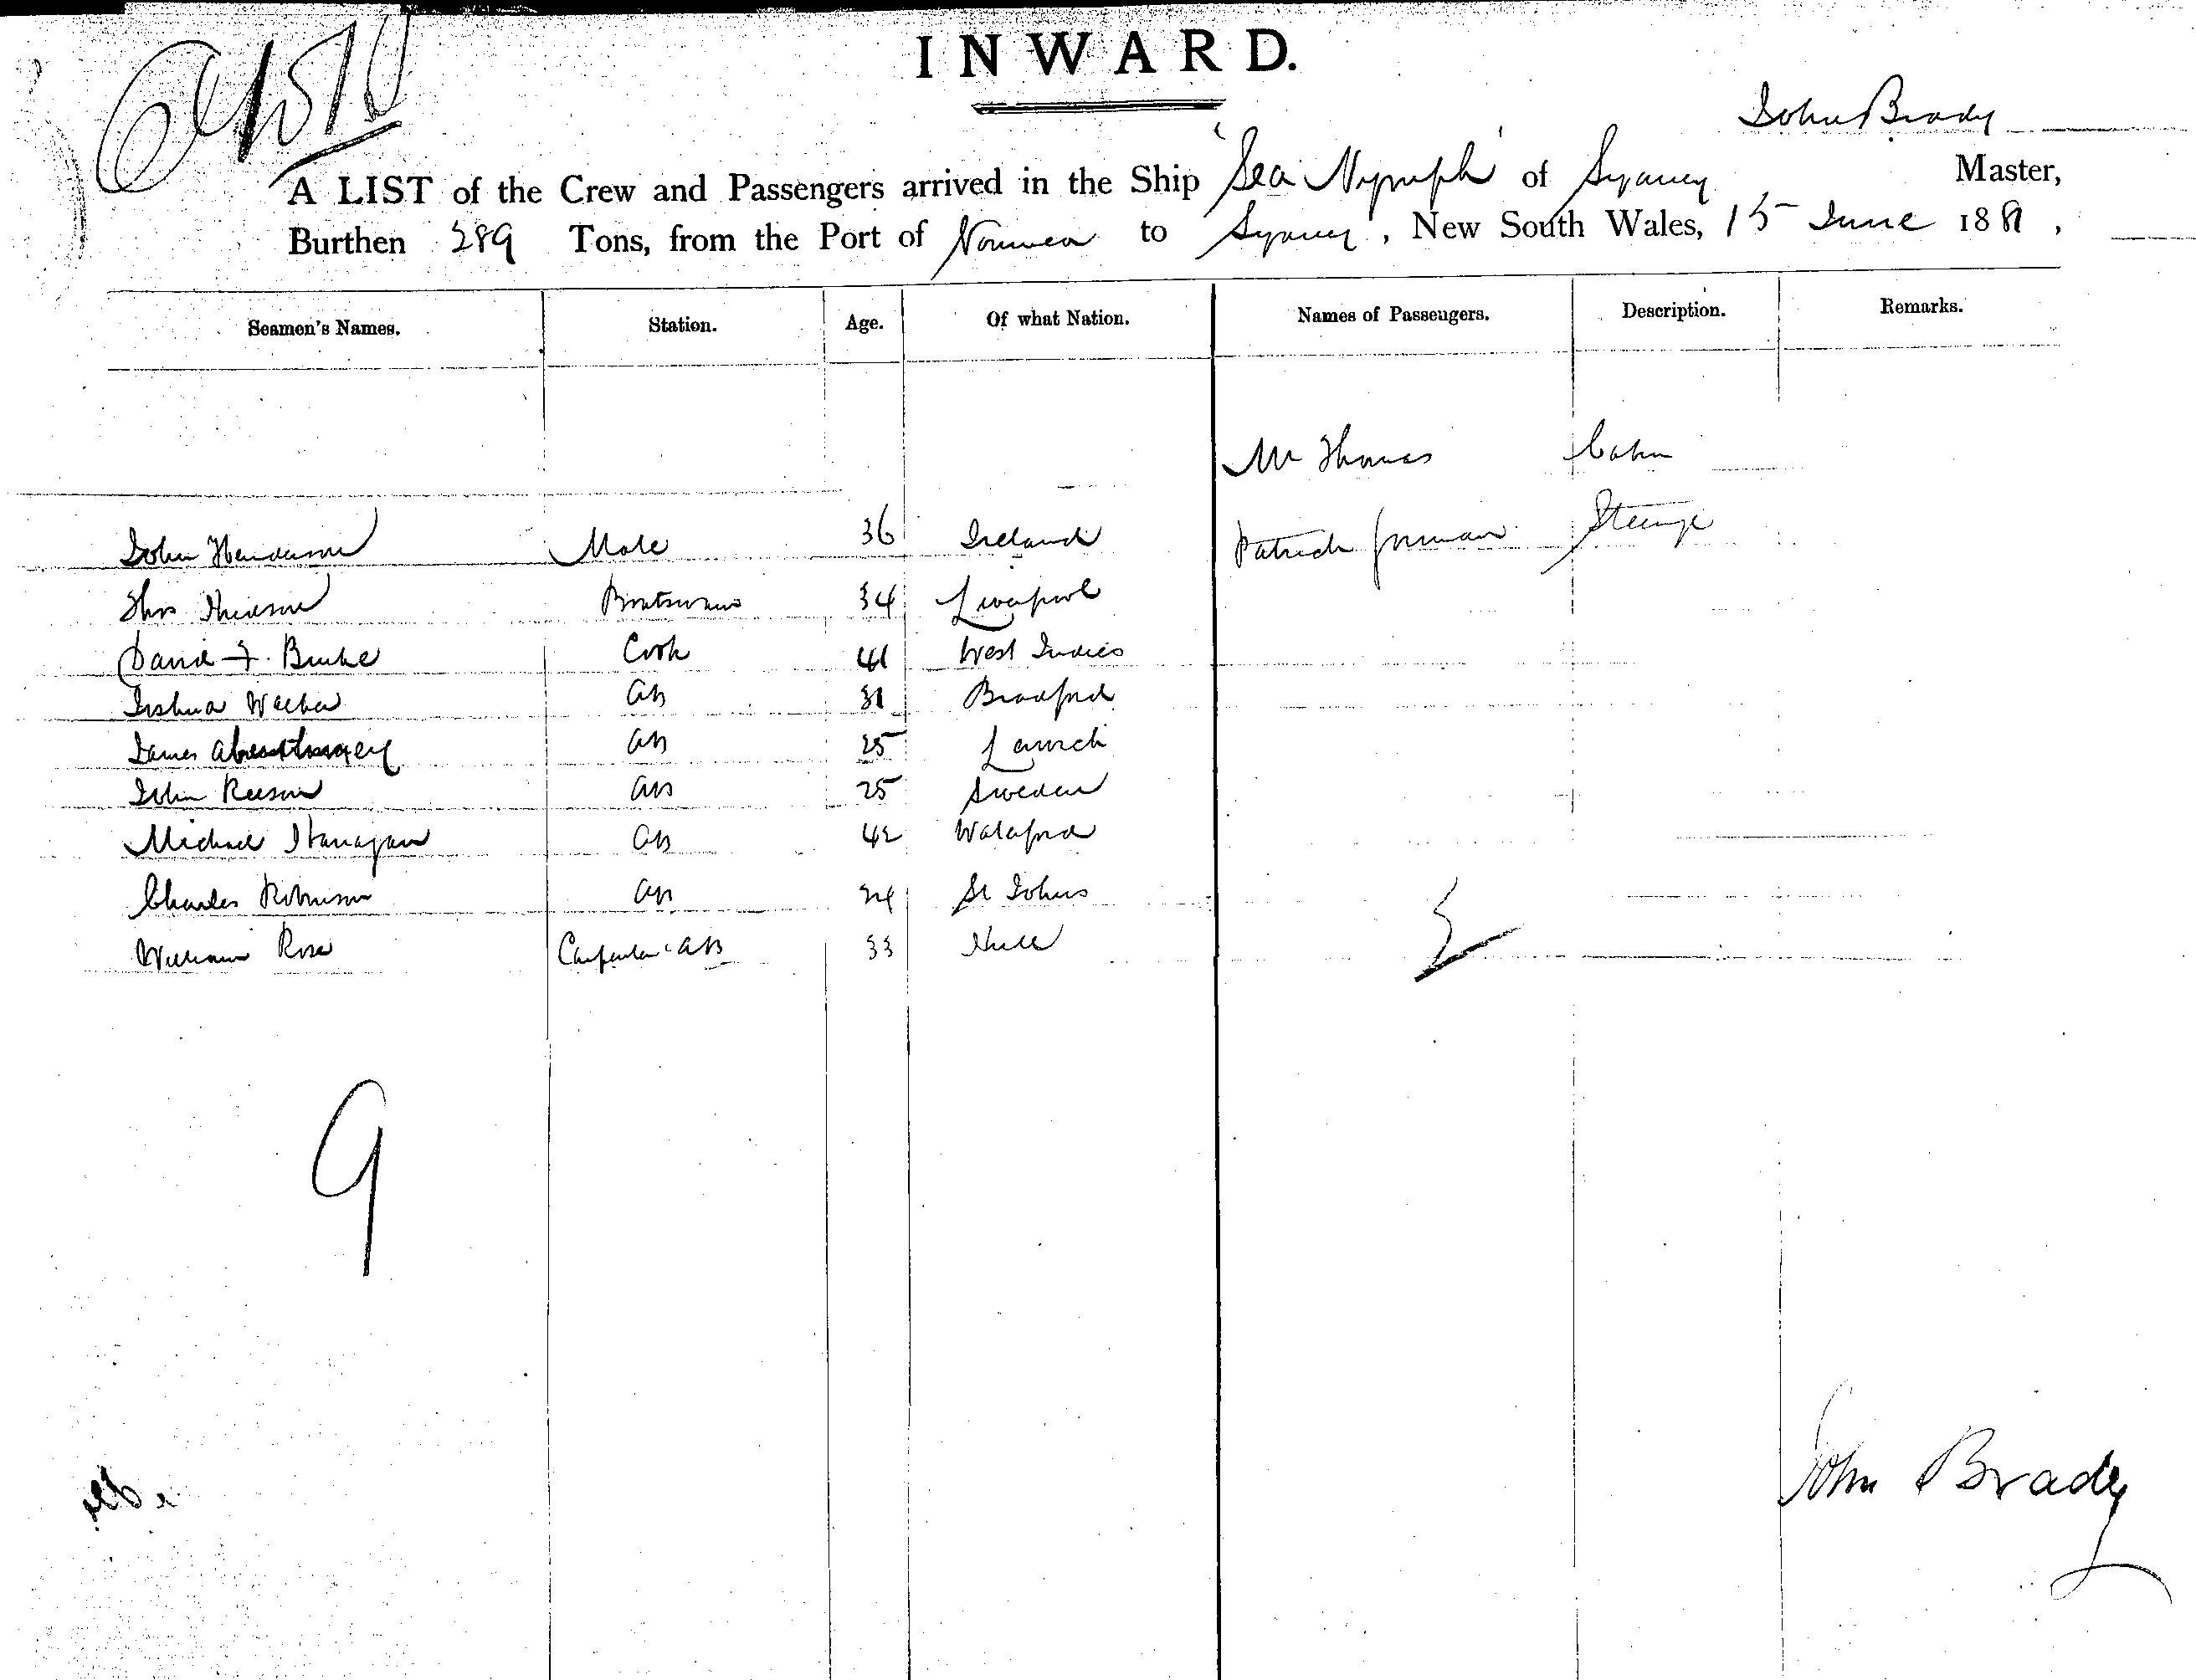 INWARD.
John Brady
A LIST of the Crew and Passengers arrived in the Ship 'Sea Nymph' of Sydney Master,
Burthen 289 Tons, from the Port of Noumea to Sydney, New South Wales, 15 June 188
Seamen's Names. Station. Age. Of what Nation. Names of Passengers. Description. Remarks.
Mr Thomas Cabin
John Henderson Mate 36 Ireland Patrick Gorman Steerage
Thos Boatswain 34 Liverpool
David F. Burke Cook 41 West Indies
Joshua Walker AB 31 Bradford
James AB 25
John AB 25 Sweden
Michael Flanagan AB 42 Waterford
Charles Robinson AB 24 St Johns
William Rose Carpenter & AB 33 Hull
9
John Brady